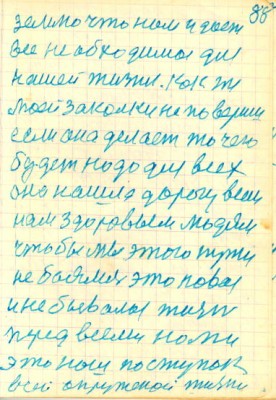 86
землю что нам и дает
все необходимая для
нашей жизни. как ти
моей закалки не поверит
если она делает то чего
будет надо для всех
она нашла дорогу всем
нам здоровым людям
чтобы мы этого пути
не боялися это новая
и небывалая жизнь
перед всеми нами
это наш поступок
всей окружоной жизни